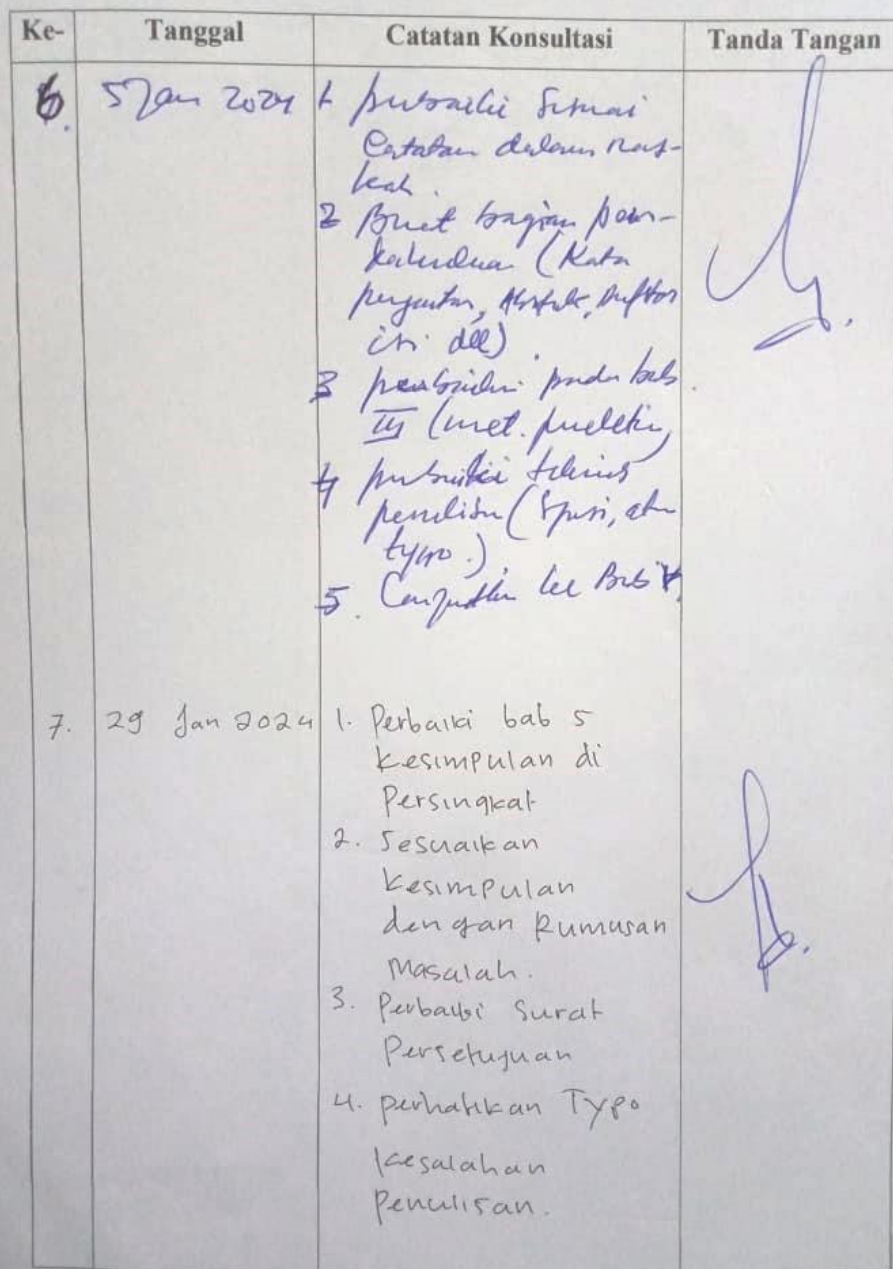 Ke- Tanggal Catatan Konsultasi Tanda Tangan
6. 5 Jan 2024 1. perbaiki sesuai
Catatan dalam nas-
kah.
2 Buat bagian pen-
dahuluan (Kata
pengantar, Abstrak, Daftar
isi dll)
3 perbaiki pada bab
III (met. penelitian)
4 perbaiki teknis
penulisan (spasi,
typo.)
5. Lanjutkan ke Bab V.
7. 29 Jan 2024 1. Perbaiki bab 5
kesimpulan di
Persingkat
2. Sesuaikan
kesimpulan
dengan Rumusan
Masalah.
3. Perbaiki Surat
Persetujuan
4. perhatikan Typo
kesalahan
Penulisan.